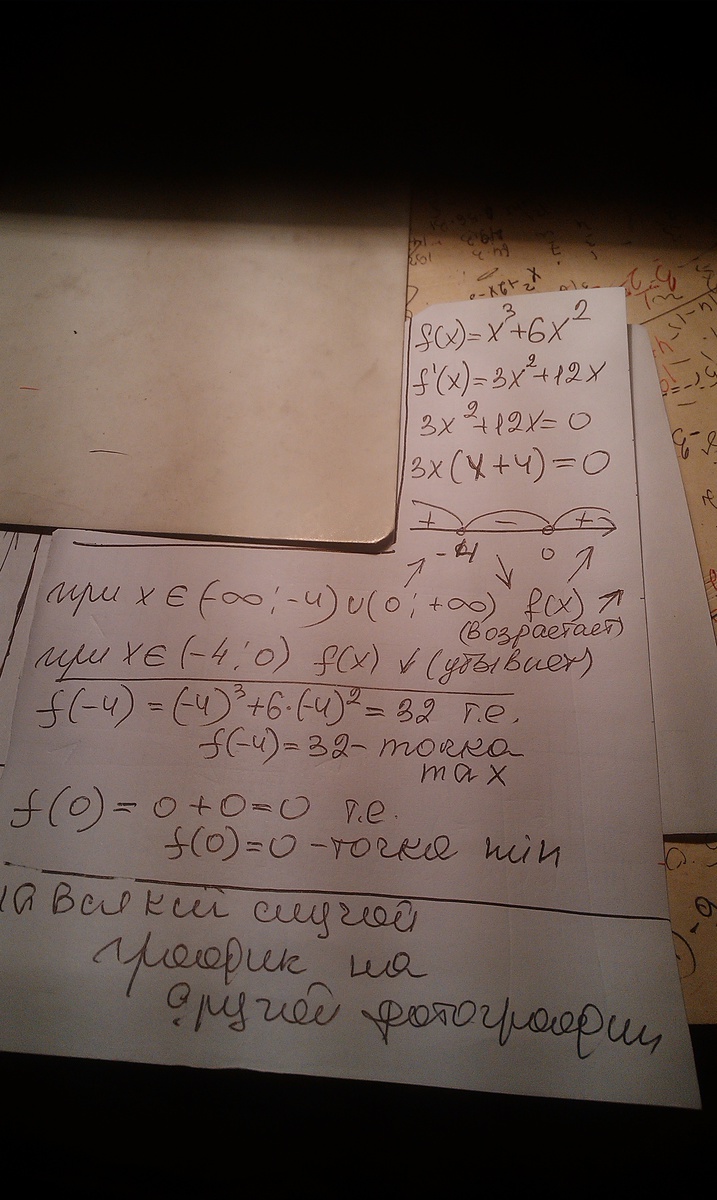 f(x)=x³+6x²
f'(x)=3x²+12x
3x²+12x=0
3x(x+4)=0
+ - +
-4 0
при x∈(-∞;-4)∪(0;+∞) f(x)↗
(возрастает)
при x∈(-4;0) f(x)↙(убывает)
f(-4)=(-4)³+6·(-4)²=32 т.е.
f(-4)=32-точка
max
f(0)=0+0=0 т.е.
f(0)=0-точка min
на всякий случай
график на
другой фотографии